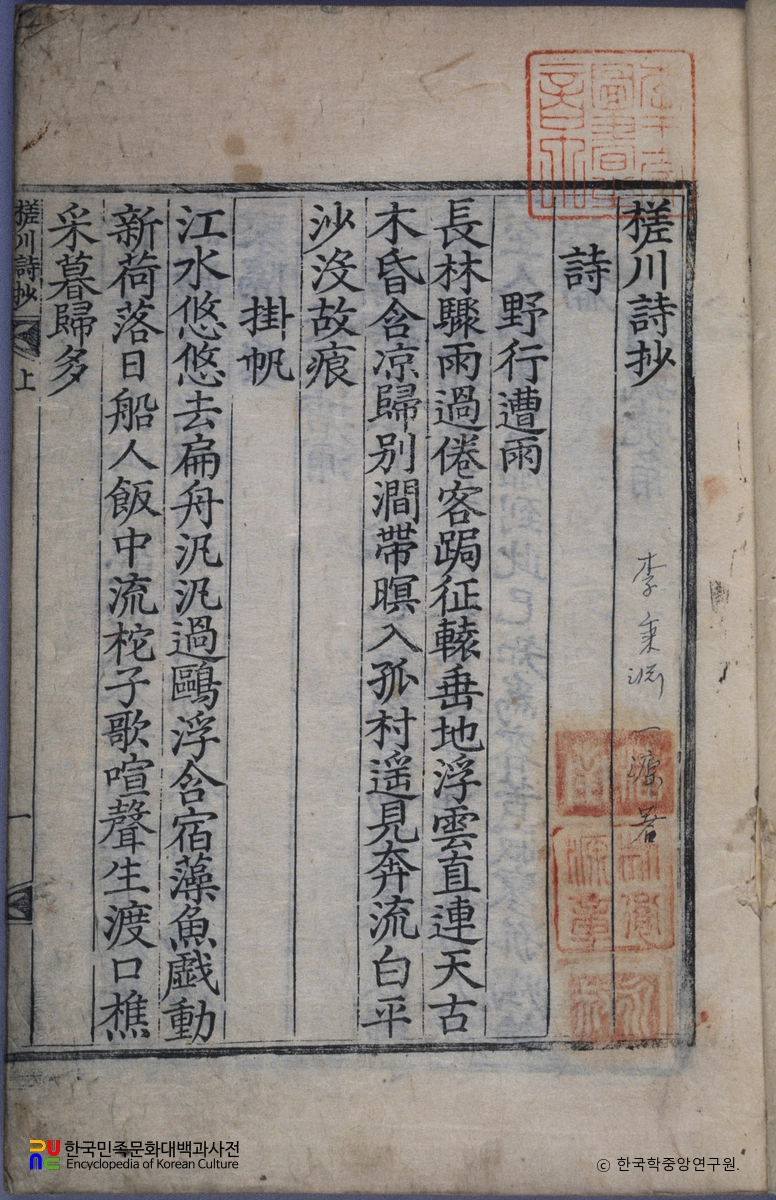 槎川詩抄
李秉淵 一源 著
詩
野行遭雨
長林驟雨過倦客跼征轅垂地浮雲直連天古
木昏含凉歸別澗帶暝入孤村遥見奔流白平
沙沒故痕
掛帆
江水悠悠去扁舟汎汎過鷗浮含宿藻魚戯動
新荷落日船人飯中流柁子歌喧聲生渡口樵
采暮歸多
槎川詩抄 上 一
한국민족문화대백과사전
Encyclopedia of Korean Culture
ⓒ 한국학중앙연구원.